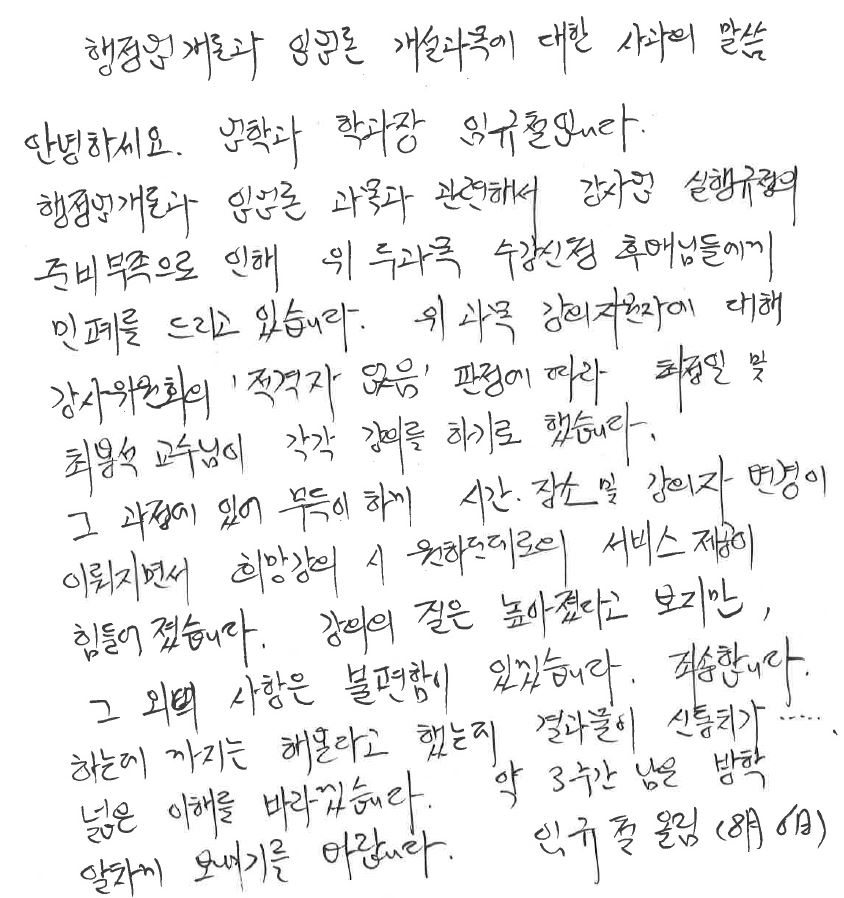 행정법개론과 입법론 개설과목에 대한 사과의 말씀
안녕하세요. 법학과 학과장 임규철입니다.
행정법개론과 입법론 과목과 관련해서 강사법 실행규정의
준비부족으로 인해 위 두과목 수강신청 후배님들에게
민폐를 드리고 있습니다. 위 과목 강의지원자에 대해
강사위원회의 '적격자 없음' 판정에 따라 최정일 및
최봉석 교수님이 각각 강의를 하기로 했습니다.
그 과정에 있어 부득이 하게 시간. 장소 및 강의자 변경이
이뤄지면서 희망강의 시 원하던대로의 서비스 제공이
힘들어 졌습니다. 강의의 질은 높아졌다고 보지만,
그 외의 사항은 불편함이 있겠습니다. 죄송합니다.
하는데 까지는 해볼라고 했는데 결과물이 신통치가 ‥‥‥.
넓은 이해를 바라겠습니다. 약 3주간 남은 방학
알차게 보내기를 바랍니다. 임규철 올림 (8月 6日)